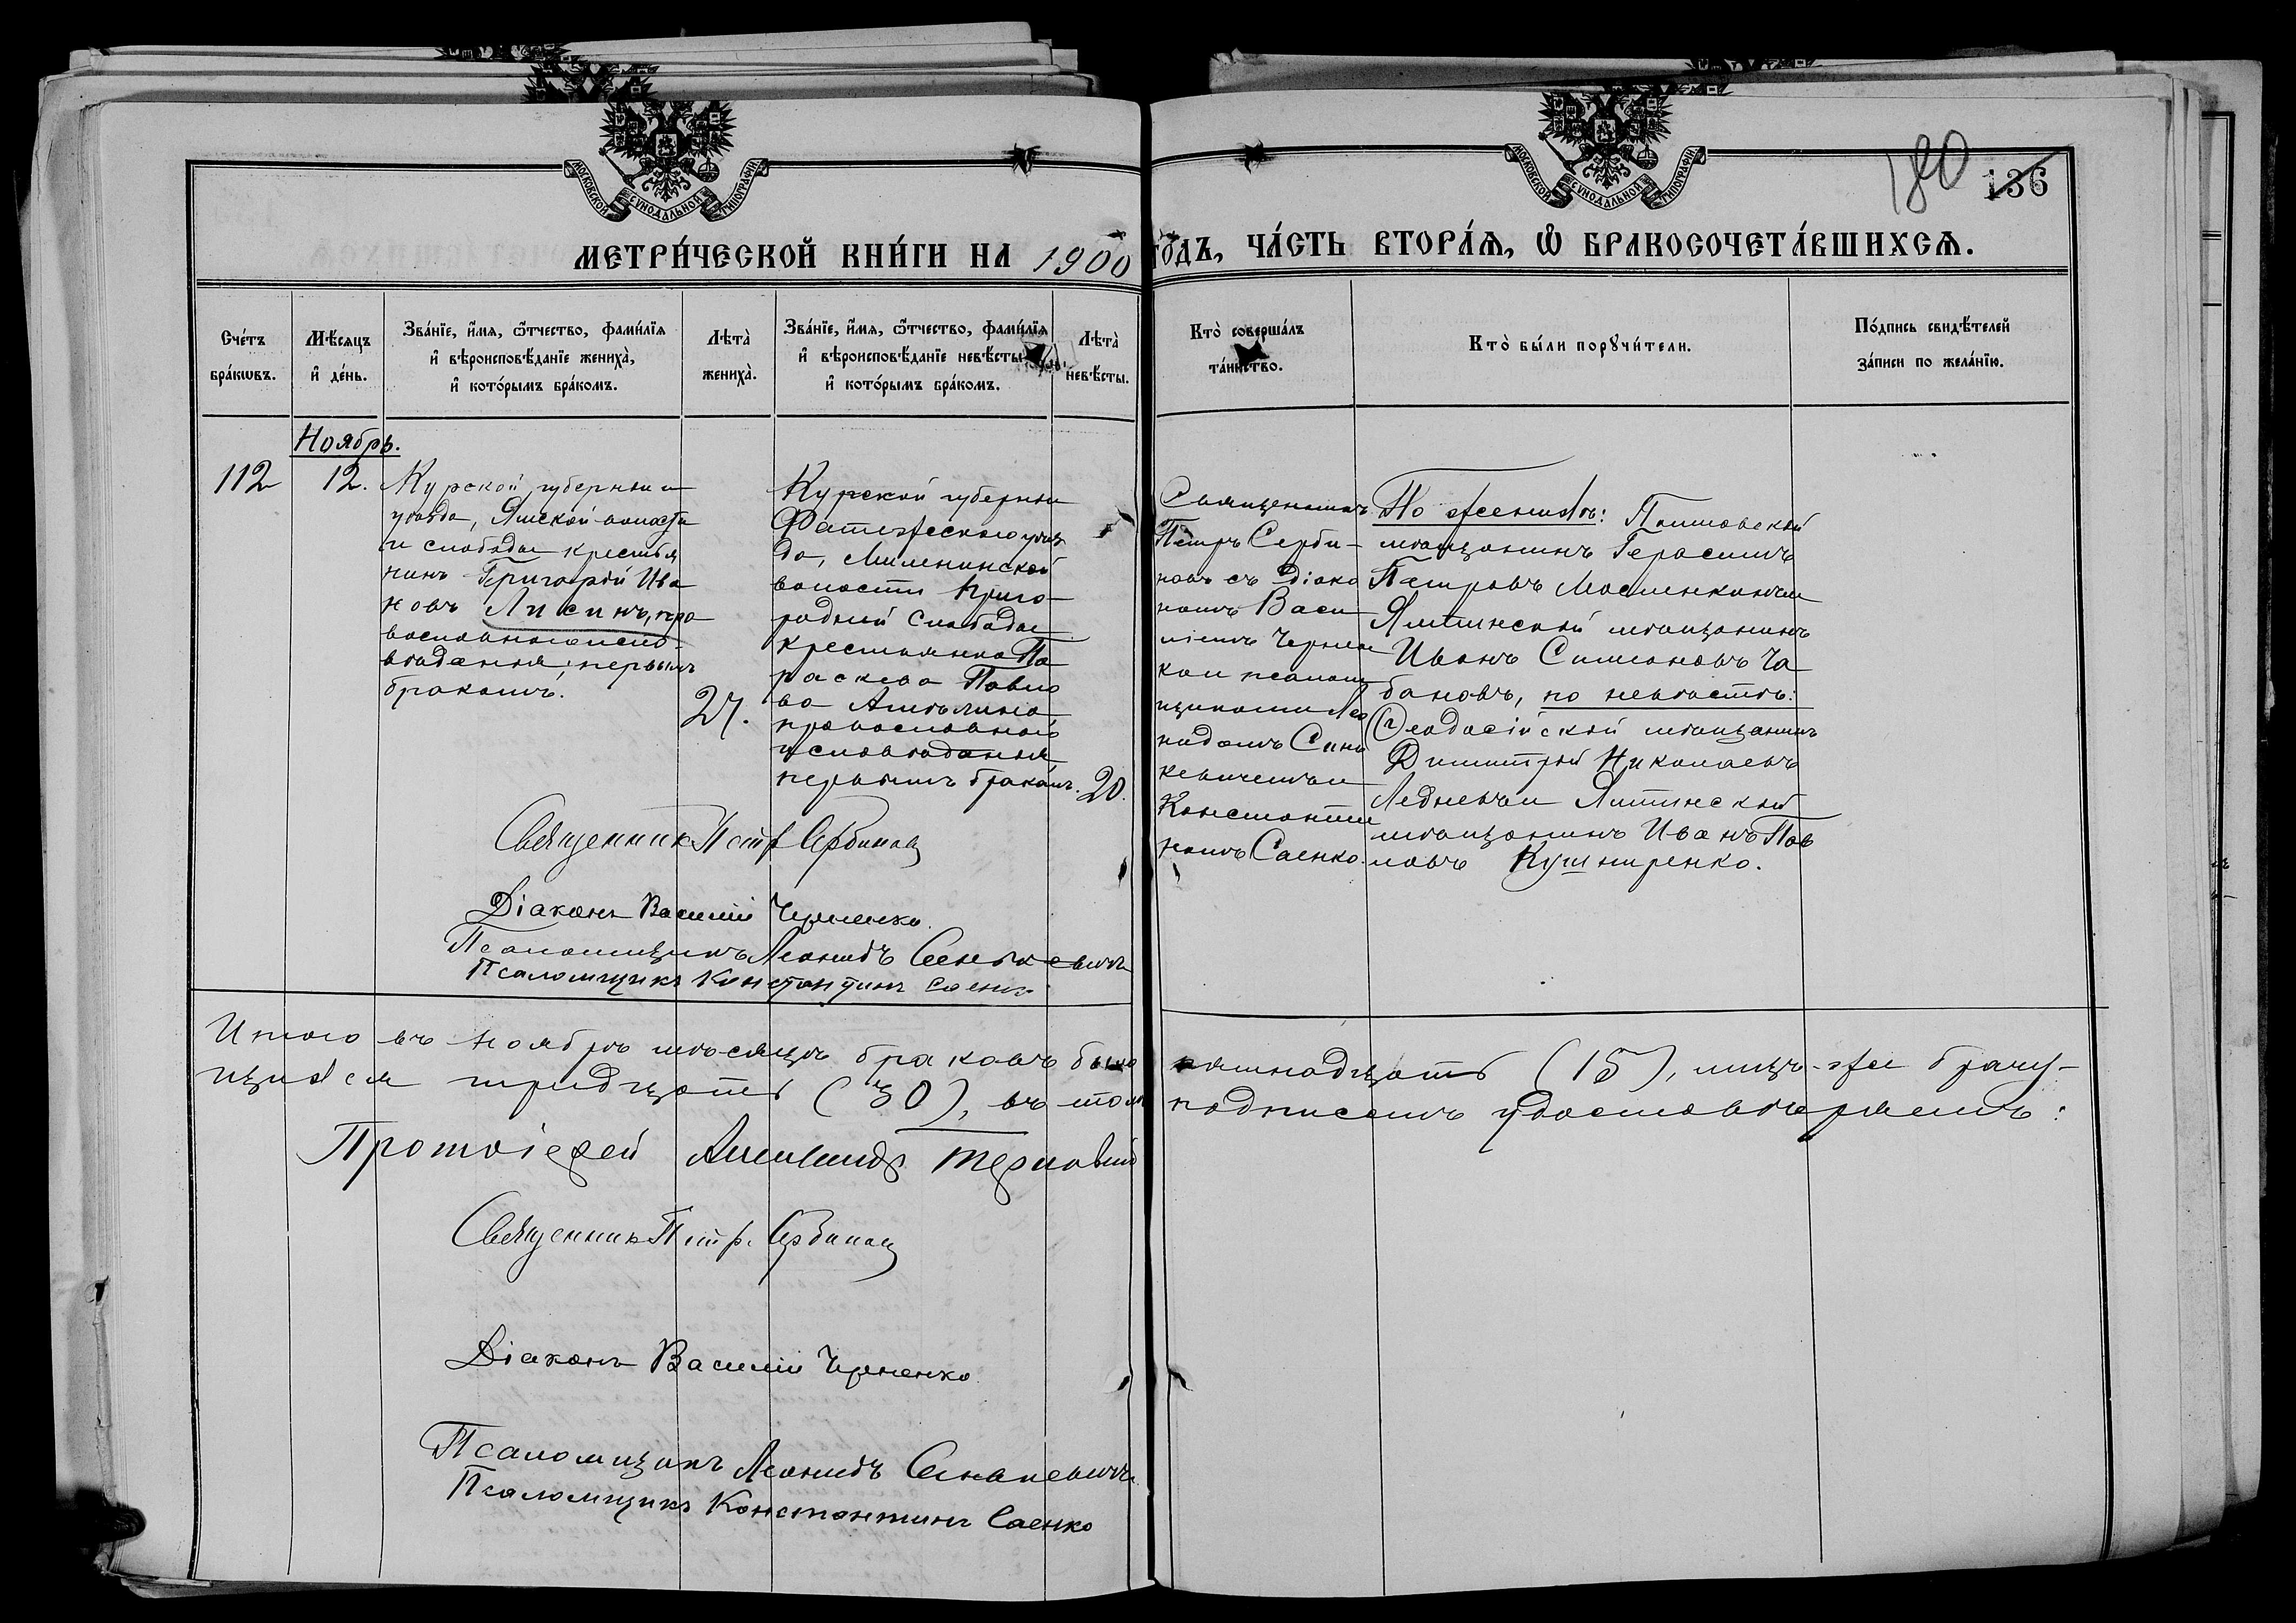 МОСКОВСКОЙ СѴНОДАЛЬНОЙ ТИПОГРАФІИ
МОСКОВСКОЙ СѴНОДАЛЬНОЙ ТИПОГРАФІИ
180 136
МЕТРИ́ЧЕСКОЙ КНИ́ГИ НА 1900 ГО́ДЪ, ЧА́СТЬ ВТОРА́Ѧ, Ѡ҆ БРАКОСОЧЕТА́ВШИХСѦ.
Сче́тъ
бра́кѡвъ.
Мѣ́сяцъ
и҆ де́нь.
Зва́нїе, и҆́мѧ, ѻ҆́тчество, фами́лїѧ
и҆ вѣроисповѣ́данїе жениха̀,
и҆ кото́рымъ бра́комъ.
Лѣта̀
жениха̀.
Зва́нїе, и҆́мѧ, ѻ҆́тчество, фами́лїѧ
и҆ вѣроисповѣ́данїе невѣ́сты
и҆ кото́рымъ бра́комъ.
Лѣта̀
невѣ́сты.
Кто̀ соверша́лъ
та́инство.
Кто̀ бы́ли порꙋчи́тели.
По́дпись свидѣ́телей
за́писи по жела́нїю.
Ноябрь.
112
12.
Курской губерніи и
уѣзда, Ямской волости
и слободы крестья
нинъ Григорій Ива
новъ Лисинъ, пра
вославнаго испо-
вѣданія; первымъ
бракомъ.
27.
Курской губерніи
Фатежскаго уѣз
да, Миленинской
волости Приго-
родней слободы
крестьянка Па
раскева Павло
ва Амелина
православнаго
исповѣданія
первымъ бракомъ.
20.
Священникъ
Петръ Серби-
новъ съ діако
номъ Васи
ліемъ Чернен
ко и псалом
щиками Лео
нидомъ Сень
кевичемъ и
Константи
номъ Саенко.
По женихѣ:
мѣщанинъ Герасимъ
Петровъ Масленкинъ и
Ялтинскій мѣщанинъ
Иванъ Симоновъ Ча
бановъ, по невѣстѣ:
Ѳеодосійскій мѣщанинъ
Димитрій Николаевъ
Ледневъ и Ялтинскій
мѣщанинъ Иванъ Пав
ловъ Кушниренко.
Священникъ Петр Сербинов
Діаконъ Василій Черненко.
Псаломщикъ Леонидъ Сенькевичъ
Псаломщикъ Константинъ Саенко
Итого въ ноябрѣ мѣсяцѣ браковъ было пятнадцать (15), лицъ-же брачу-
щихся тридцать (30), въ томъ подписомъ удостовѣряемъ:
Протоіерей Александръ Терновскій
Священникъ Петр. Сербинов
Діаконъ Василій Черненко
Псаломщикъ Леонидъ Сенькевичъ
Псаломщикъ Константинъ Саенко